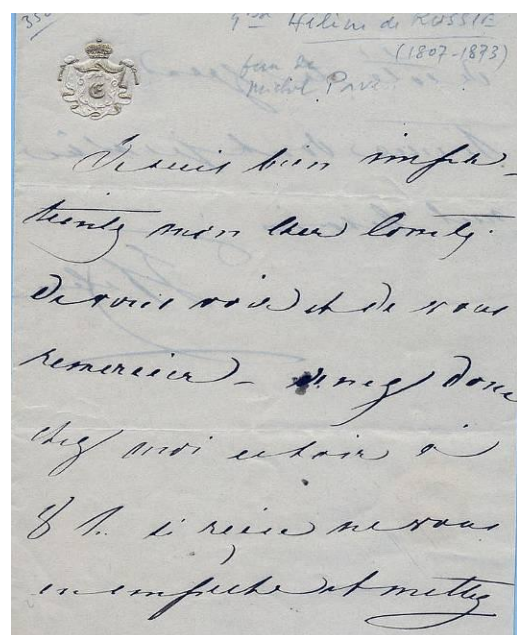 350
Hélène de RUSSIE
(1807-1873)
fem de
Michel
E
Je suis bien impa-
tiente mon cher Comte
de vous voir et de vous
remercier - venez donc
chez moi ce soir à
8 h. si rien ne vous
en empêche et mettez